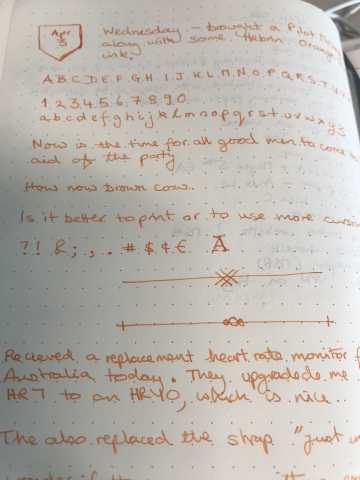 Apr
3
Wednesday - brought a Pilot
along with some Herbin Orange
ink.
A B C D E F G H I J K L M N O P Q R S T U V
1 2 3 4 5 6 7 8 9 0
a b c d e f g h i j k l m n o p q r s t u v w x y z
Now is the time for all good men to come
aid of the party
How now brown cow..
Is it better to print or to use more cursive
? ! & ; , . . # $ ¢ € A
Recieved a replacement heart rate monitor f
Australia today. They upgraded me
HR7 to an HR40, which is nice..
The also replaced the strap "just